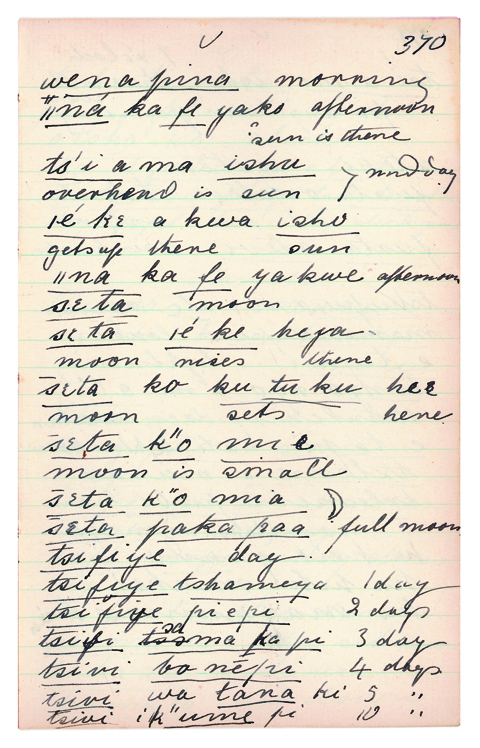 370
wena pina morning
"ina ka fe yako afternoon
"sun is there
ts'i a ma ishu
overhead is sun } midday
ié ke a kewa isho
gets up there sun
"ina ka fe yakwe afternoon
seta moon
seta ié ke heya
moon rises there
seta ko ku tu ku hee
moon sets here
seta k"o mie
moon is small
seta k"o mia
seta paka paa full moon
tsifiye day
tsifiye tshameya 1 day
tsifiye piepi 2 days
tsivi ma ka pi 3 day
tsivi bo nepi 4 days
tsivi wa tana ki 5 "
tsivi ik"ume pi 10 "